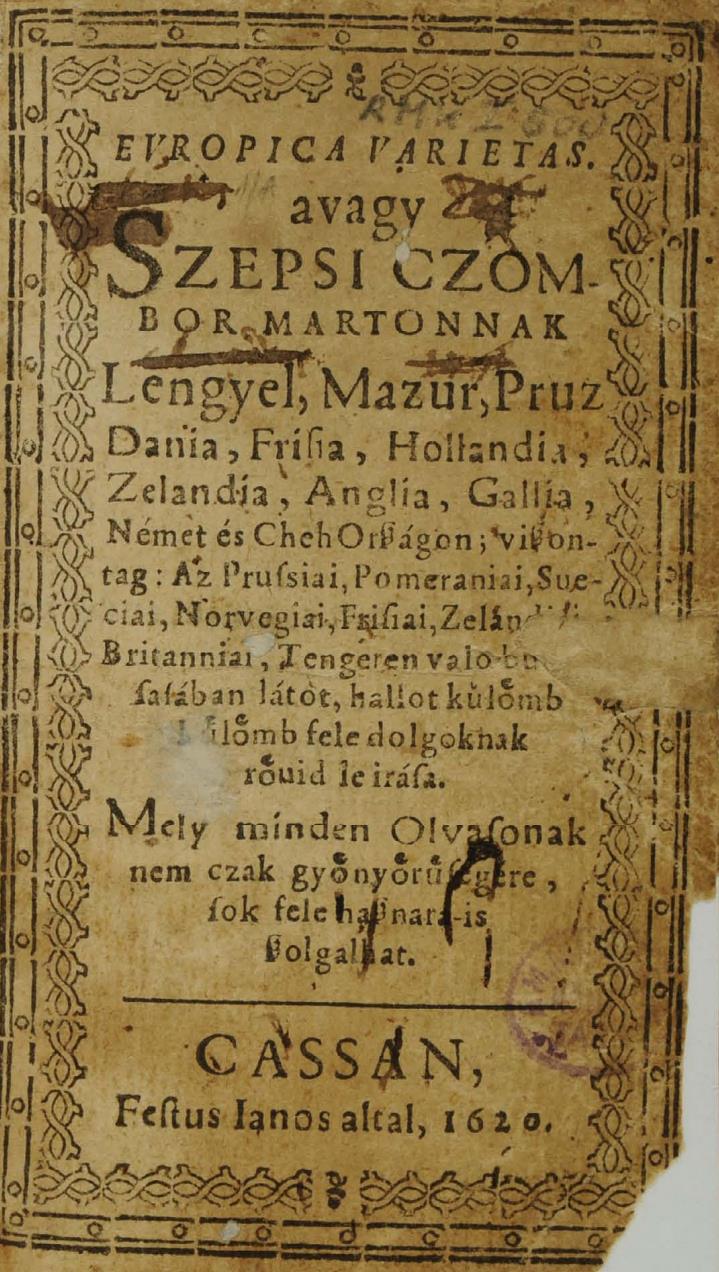 EVROPICA VARIETAS.
avagy
SZEPSI CZOM-
BOR MARTONNAK
Lengyel, Mazur, Pruz
Dania, Friſia, Hollandia,
Zelandia, Anglia, Gallia,
Német és Cheh Orßágon; vißon-
tag: Az Pruſsiai, Pomeraniai, Sue-
ciai, Norvegiai, Friſiai, 
Britanniai, Tengeren valo
ſaſában látot, hallot kuͤloͤmb
fele dolgoknak
roͤuid le iráſa.
Mely minden Olvaſonak
nem czak gyoͤnyoͤruͤſegere,
ſok fele haßnara-is
ßolgalhat.
CASSAN,
Feſtus Ianos altal, 1620.